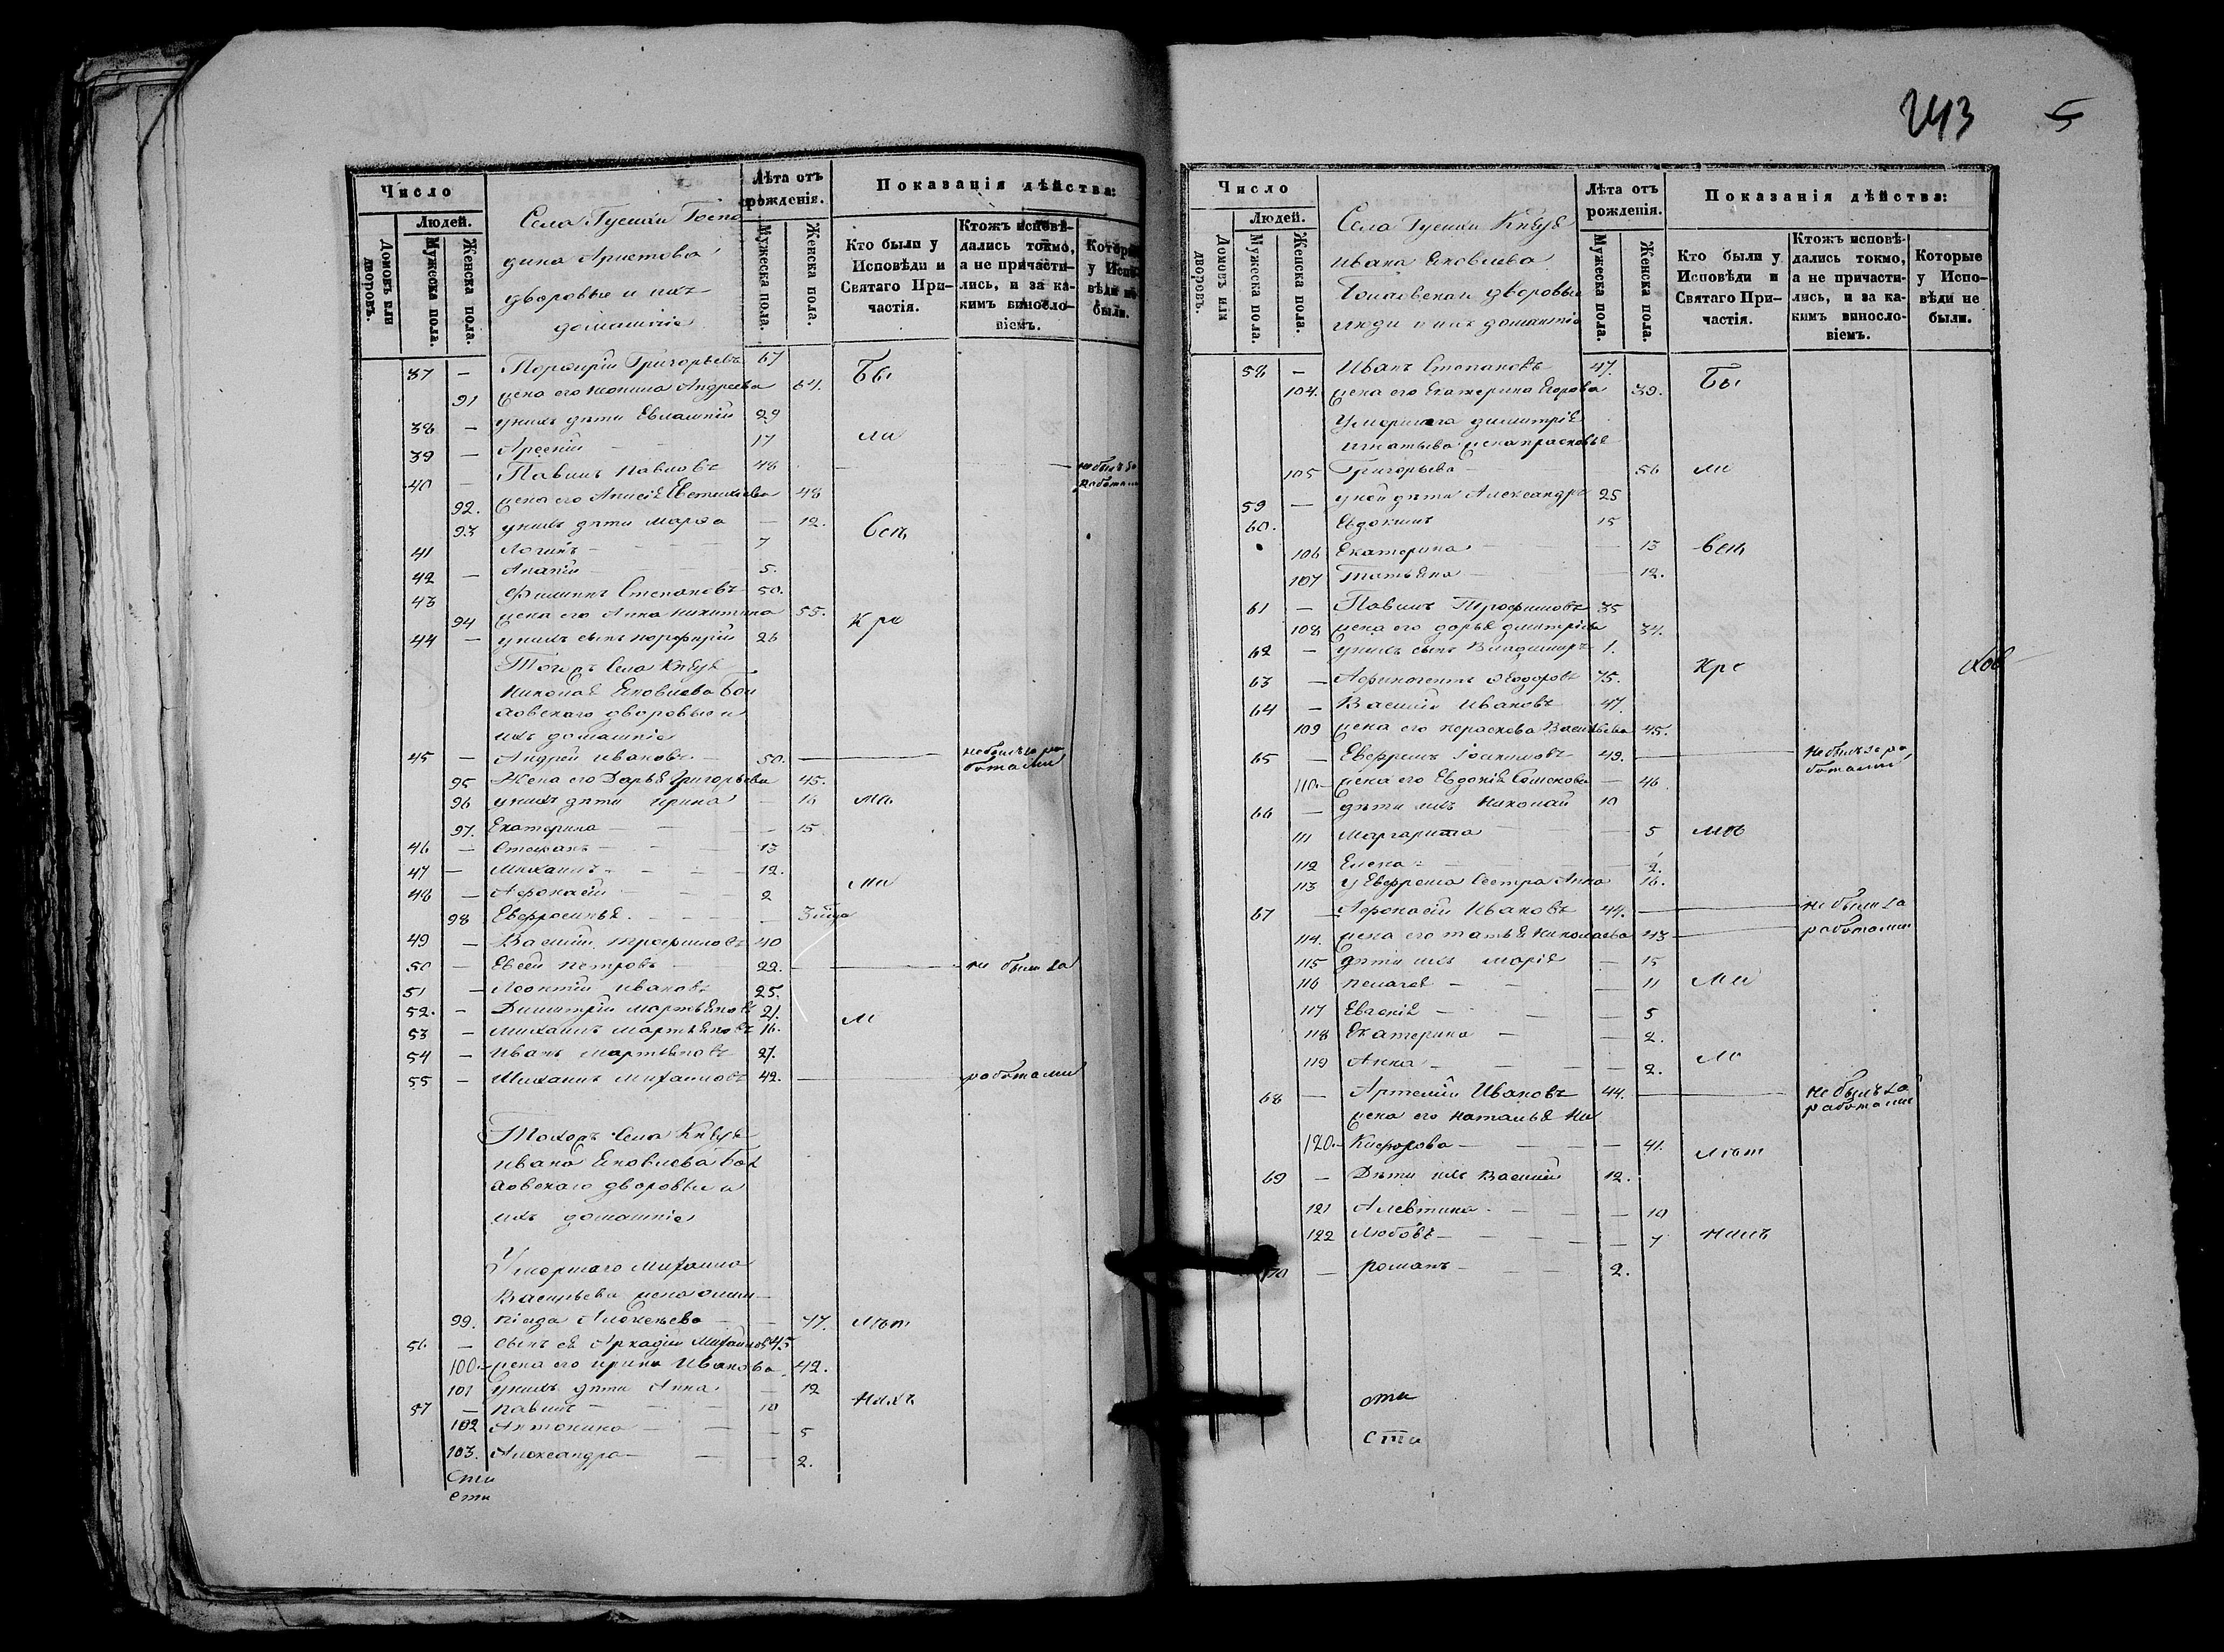 243 5
Число
Людей.
Домовъ или дворовъ.
Мужеска пола.
Женска пола.
Села Гуслки Госпо
дина Аристова
дворовые и ихъ
домашніе
Лѣта отъ рожденія.
Мужеска пола.
Женска пола.
Показанія дѣйства:
Кто были у Исповѣди и Святаго При-частія.
Ктожъ исповѣ-дались токмо, а не причасти-лись, и за ка-кимъ виносло-віемъ.
у вѣди не были.
37 — Порфирій Григорьевъ 67 Бы
91 жена его Андреева 64.
38 — у нихъ дѣти Евлампій 29
39 — Арсеній 17 ли
40 — Павелъ Павловъ 48 — не былъ за работами
92. жена его 48
93 у нихъ дѣти Марфа — 12. Всѣ
41 Логинъ 7
42 — Ананій 5.
43 Филиппъ Степановъ 50.
94 жена его Анна Никитина 55. Кро
44 — у нихъ сынъ Порфирій 26
Тогожъ Села Князя
Николая Яковлева
дворовые и
ихъ домашніе
45 — Андрей Ивановъ 50. — не былъ за ра
ботами
95 Жена его Дарья Григорьева 45.
96 у нихъ дѣти Ирина — 16 ма
97. Екатерина — 15
46 — Степанъ 13
47 — Михаилъ 12.
48 — Афонасій 2 ли
98 Евфросинья — 3
49 — Василій Трофимовъ 40
50 — Евсей Петровъ 22. — не были за
51 — Леонтій Ивановъ 25.
52. — Димитрій Мартьяновъ 21. м
53 — Михаилъ Мартьяновъ 16.
54 — Иванъ Мартьяновъ 27.
55 — Михаилъ Михаиловъ 42. — работами
Тогожъ Села Князя
Ивана Яковлева
дворовые и
ихъ домашніе
Умершаго Михаила
Васильева жена Олим
99. піада Алексеева 47.
56 — Сынъ ея Аркадій Михайловъ 45
100. — жена его Ирина Иванова 42.
101 у нихъ дѣти Анна — 12
57 — Павелъ 10 нихъ
102 Антонина — 5
103. Александра — 2.
Число
Людей.
Домовъ или дворовъ.
Мужеска пола.
Женска пола.
Села Гуслки Князя
Ивана Яковлева
дворовые
люди и ихъ домашніе
Лѣта отъ рожденія.
Мужеска пола.
Женска пола.
Показанія дѣйства:
Кто были у Исповѣди и Святаго При-частія.
Ктожъ исповѣ-дались токмо, а не причасти-лись, и за ка-кимъ виносло-віемъ.
Которые у Испо-вѣди не были.
58 — Иванъ Степановъ 47. Бы
104. жена его Екатерина Егорова 39.
Умершаго Димитрія
Игнатьева жена Прасковья
105 Григорьева 56 ли
59 — у ней дѣти Александръ 25
60. Евдокимъ 15
106 Екатерина — 13 Всѣ
107 Татьяна — 12.
61 — Павелъ Трофимовъ 35
108 жена его Дарья Дмитріева 34.
62 — у нихъ сынъ Владимиръ 1.
63 — Афиногентъ Ѳедоровъ 75. Кро
64 — Василій Ивановъ 47.
109 жена его Параскева Васильева 45.
65 — Евфремъ Іоакимовъ 49. — не былъ за ра
ботами
110. — жена его Евдокія — 46
66 — дѣти ихъ Николай 10
111 Маргарита — 5
112 Елена — 2.
113 у Евфрема Сестра Анна 16.
67 — Афонасій Ивановъ 44. — не были за
114. жена его Татьяна Николаева 43 — работами
115 дѣти ихъ Марія — 15
116 Пелагея — 11 ли
117 Евгенія — 5
118 Екатерина — 2.
119 Анна — 2.
68 — Артемій Ивановъ 44. — не былъ за
работами
жена его Наталья Ни
120. — кифорова — 41.
69 — Дѣти ихъ Василій 12.
121 Алевтина — 10
122 Любовь — 7
70 — Романъ 2.